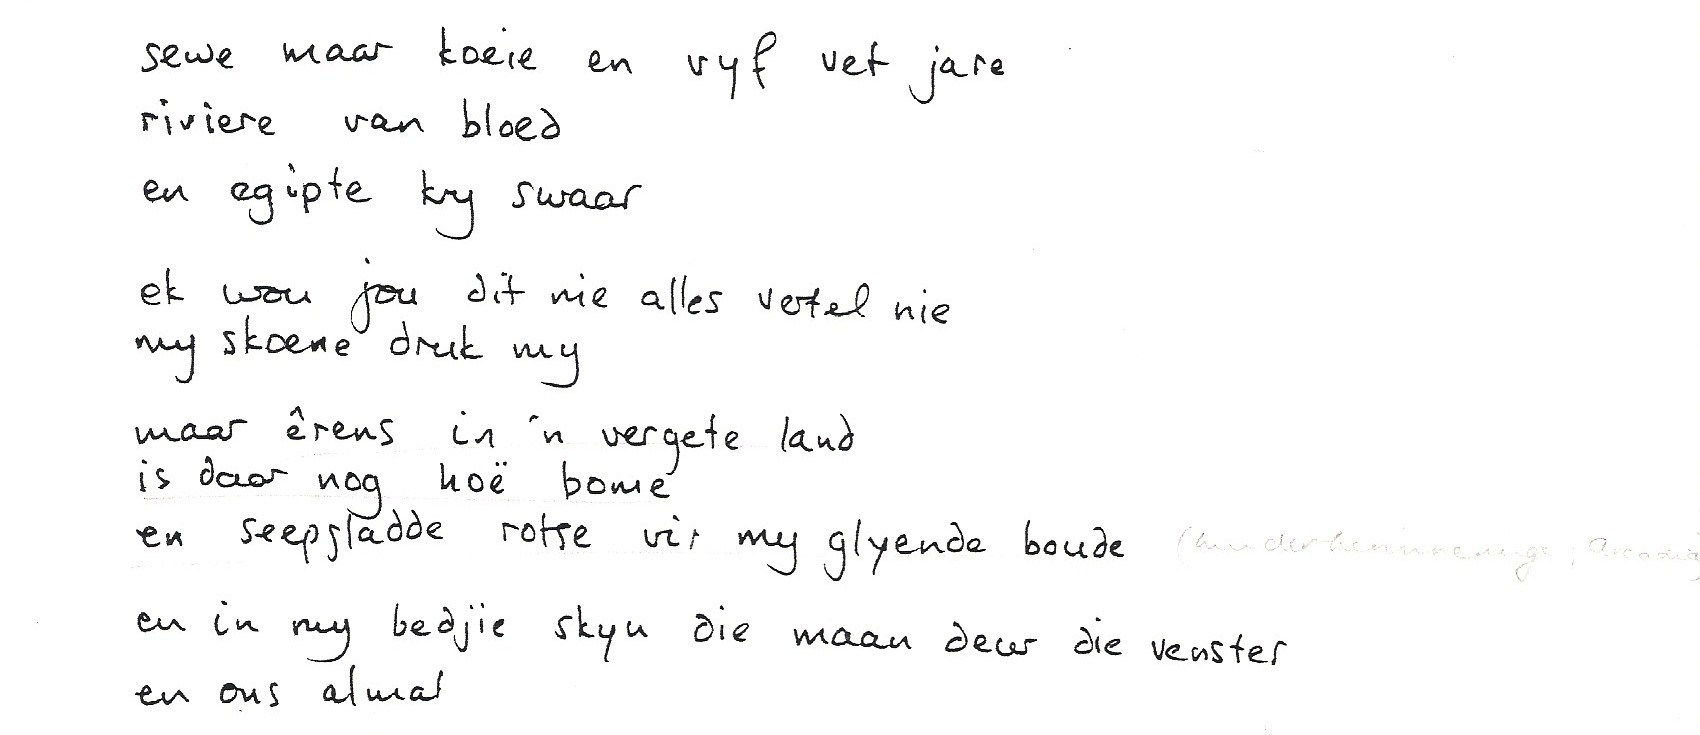 sewe maar koeie en vyf vet jare
riviere van bloed
en egipte kry swaar
ek wou jou dit nie alles vertel nie
my skoene druk my
maar êrens in 'n vergete land
is daar nog hoë bome
en seepgladde rotse vir my glyende boude
en in my bedjie skyn die maan deur die venster
en ons almal